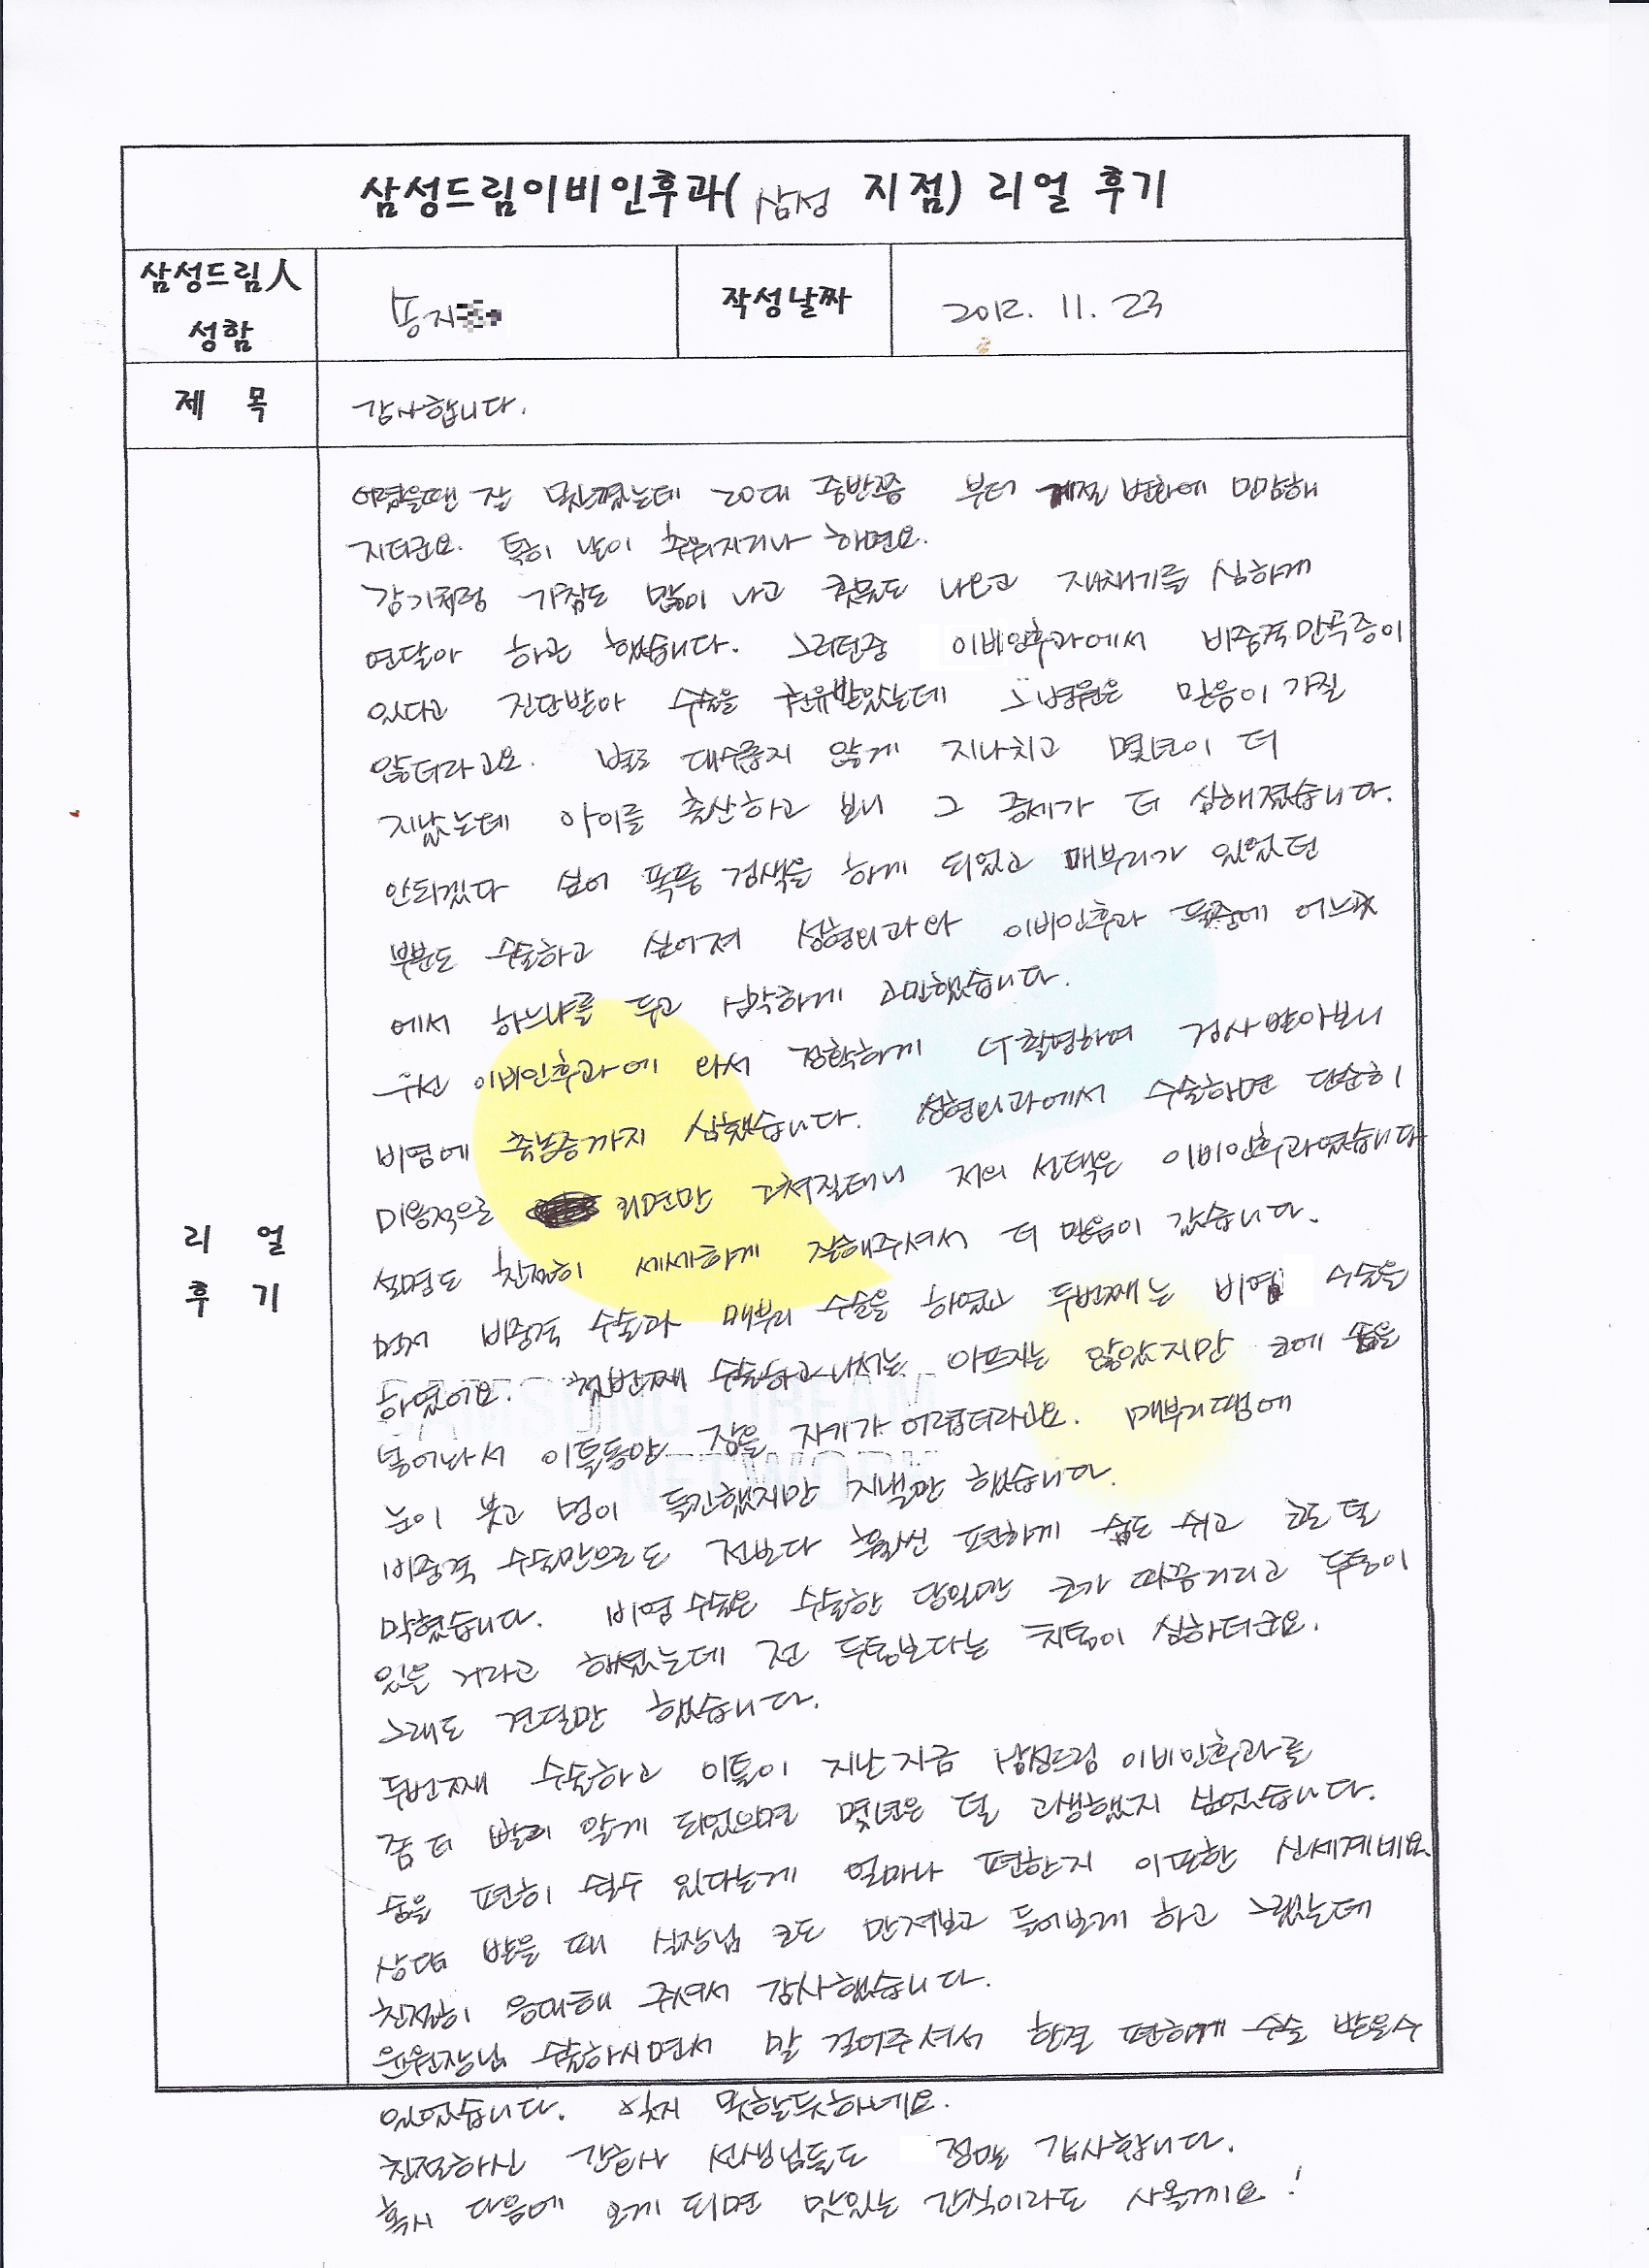 삼성드림이비인후과( 삼성 지점) 리얼 후기
삼성드림人
성함
송지
작성날짜
2012. 11. 23
제 목
감사합니다.
리 얼
후 기
어렸을땐 잘 못느꼈는데 20대 중반쯤 부터 계절 변화에 민감해
지더군요. 특히 날이 추워지거나 하면요.
감기처럼 가침도 많이 나고 콧물도 나오고 재채기를 심하게
연달아 하곤 했습니다. 그러던중 이비인후과에서 비중격만곡증이
있다고 진단받아 수술을 권유받았는데 그 병원은 믿음이 가질
않더라고요. 별로 대수롭지 않게 지나치고 몇년이 더
지났는데 아이를 출산하고 보니 그 증세가 더 심해졌습니다.
안되겠다 싶어 폭풍 검색을 하게 되었고 매부리가 있었던
부분도 수술하고 싶어져 성형외과와 이비인후과 둘중에 어느곳
에서 하느냐를 두고 심각하게 고민했습니다.
우선 이비인후과에 와서 정확하게 CT촬영하여 검사받아보니
비염에 축농증까지 심했습니다. 성형외과에서 수술하면 단순히
미용적으로 외면만 고쳐질테니 저의 선택은 이비인후과였습니다
설명도 친절히 세세하게 잘해주셔서 더 믿음이 갔습니다.
먼저 비중격 수술과 매부리 수술을 하였고 두번째는 비염 수술을
하였어요. 첫번째 수술하고나서는 아프지는 않았지만 코에 솜을
넣어놔서 이틀동안 잠을 자기가 어렵더라고요. 매부리땜에
눈이 붓고 멍이 들긴했지만 지낼만 했습니다.
SAMSUNG DREAM
NETWORK
비중격 수술만으로도 전보다 훨씬 편하게 숨도 쉬고 코도 덜
막혔습니다. 비염수술은 수술한 당일만 코가 따끔거리고 두통이
있을 거라고 하셨는데 전 두통보다는 치통이 심하더군요.
그래도 견딜만 했습니다.
두번째 수술하고 이틀이 지난지금 삼성드림 이비인후과를
좀 더 빨리 알게 되었으면 몇년은 덜 고생했지 싶었습니다.
숨을 편히 쉴수 있다는게 얼마나 편한지 이또한 신세계네요
상담 받을 때 실장님 코도 만져보고 들어보게 하고 그랬는데
친절히 응대해 주셔서 감사했습니다.
윤원장님 수술하시면서 말 걸어주셔서 한결 편하게 수술 받을수
있었습니다. 잊지 못할듯하네요.
친절하신 간호사 선생님들도 정말 감사합니다.
혹시 다음에 오게 되면 맛있는 간식이라도 사올께요!